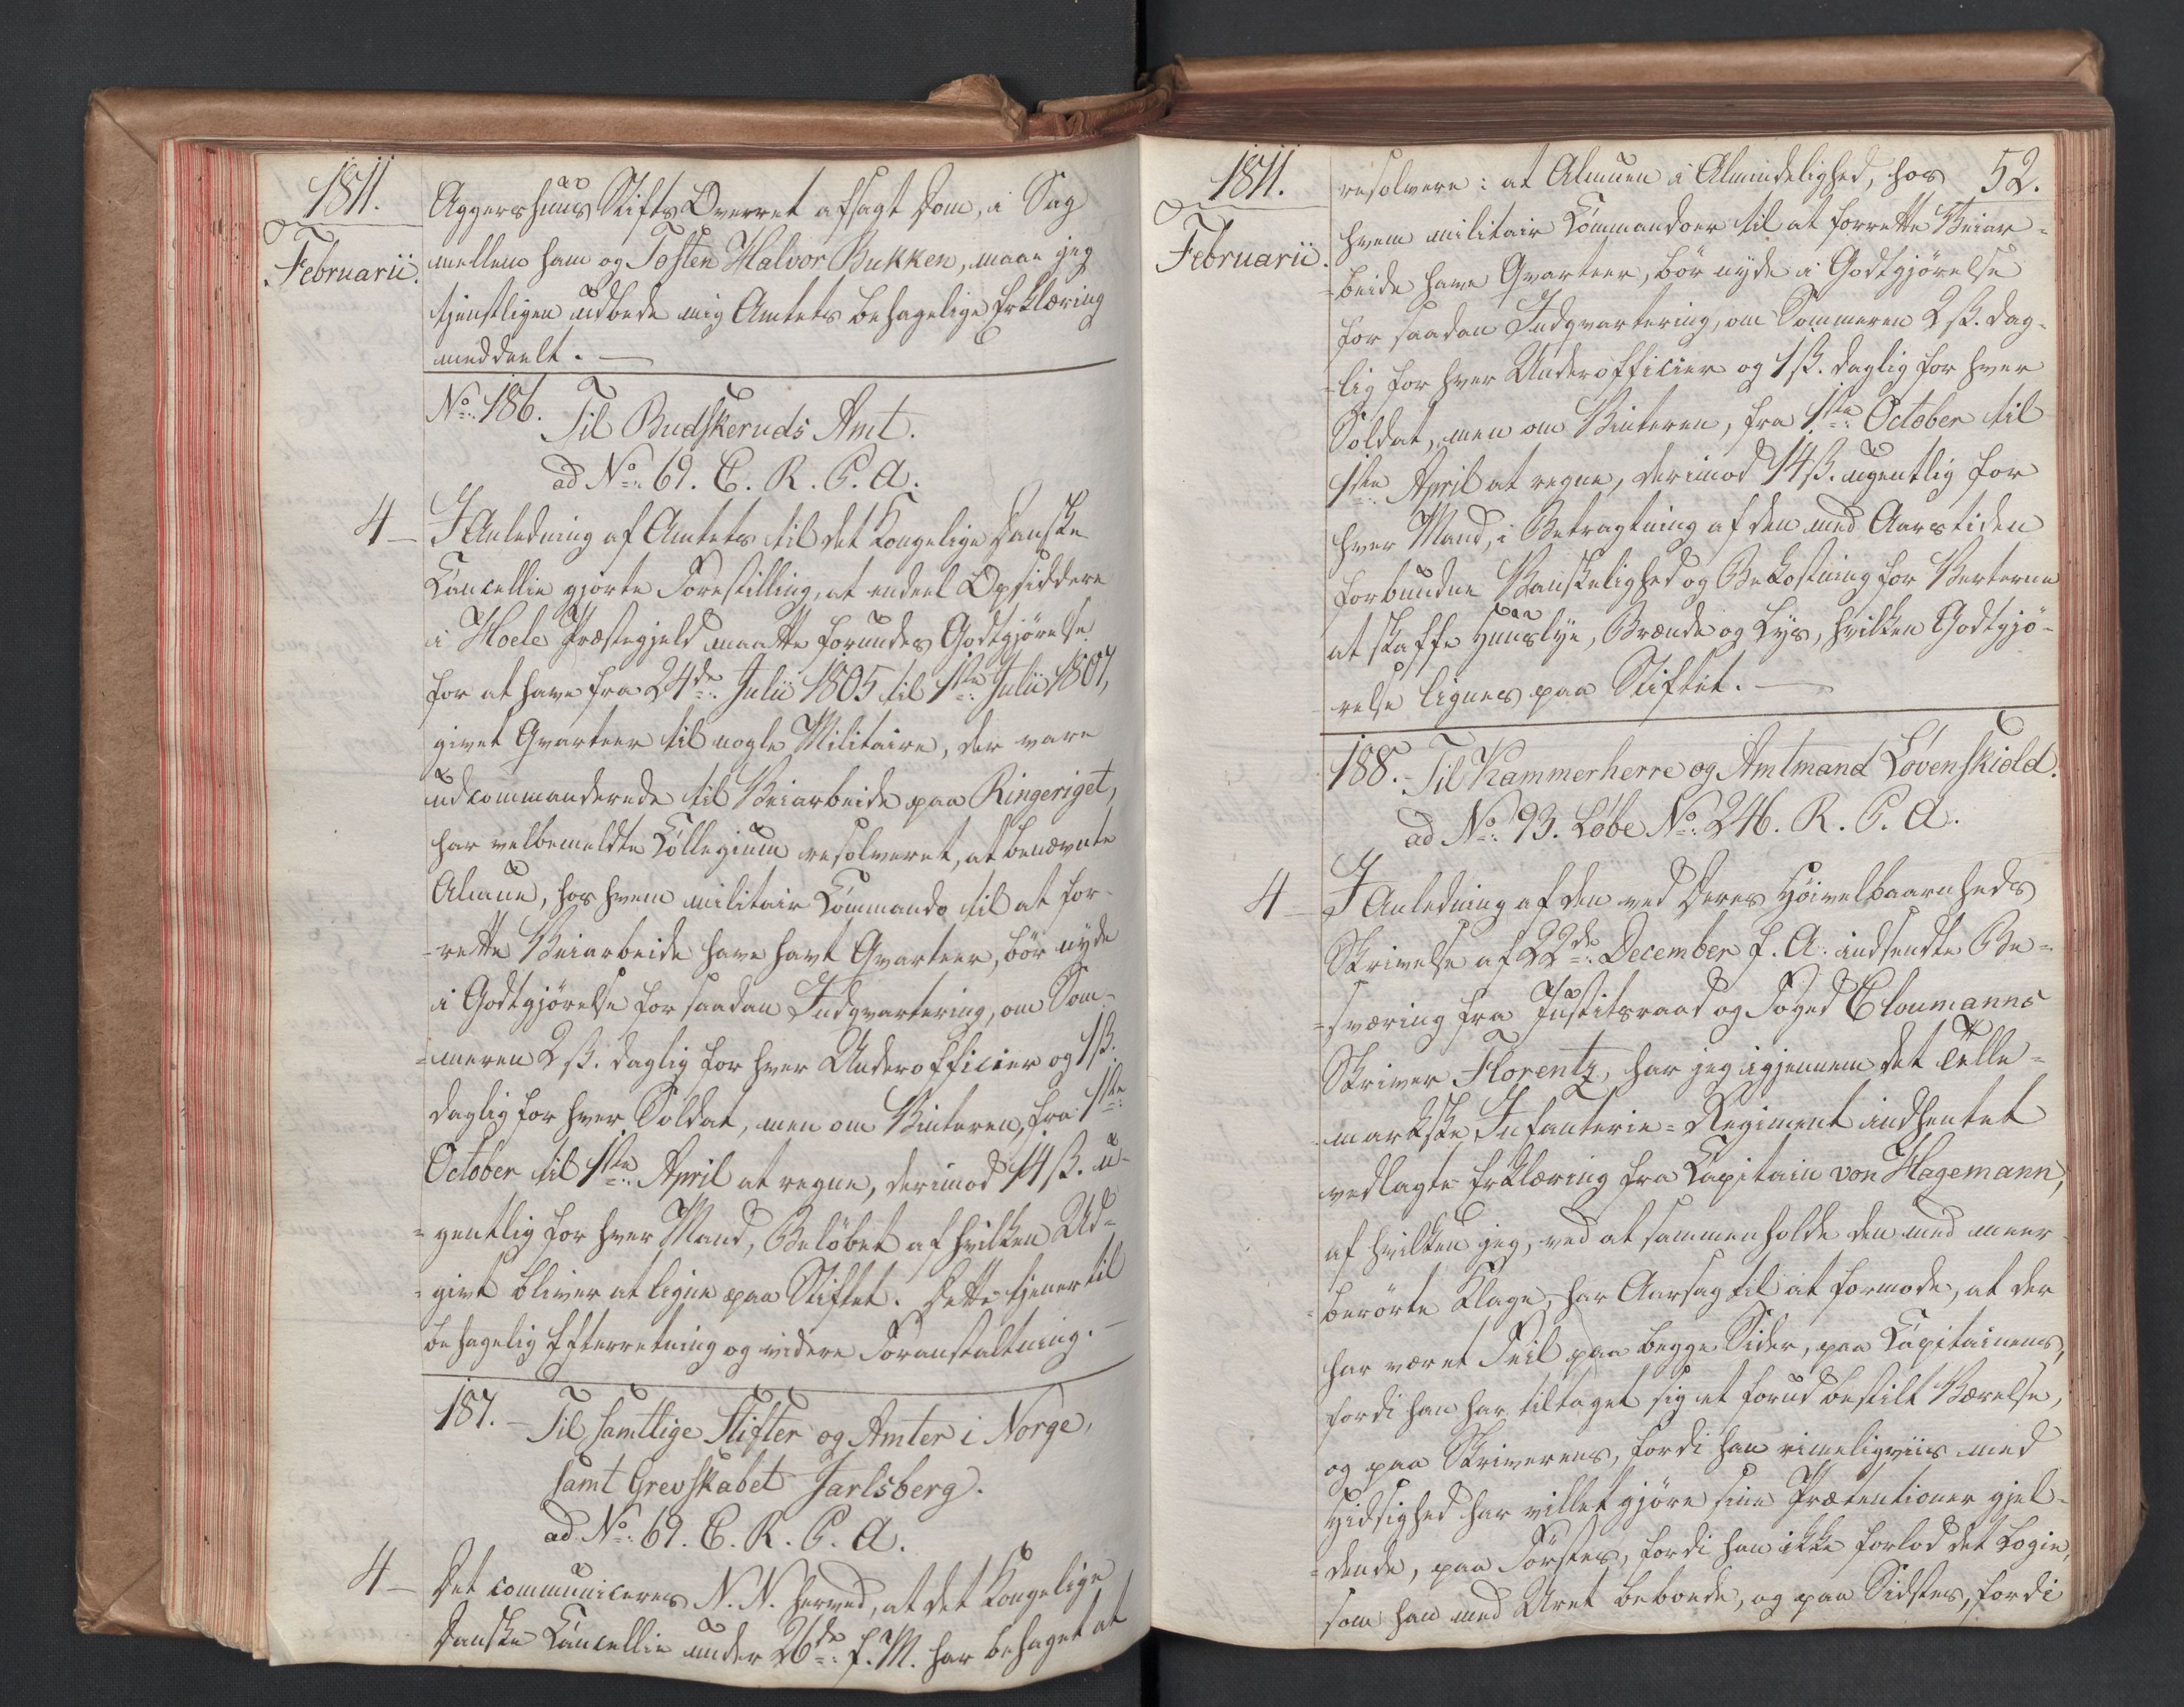 1811.
Februarii.
Aggershuus Stifts Overret afsagt Dom, i Sag
mellem ham og Tosten Halvor Bukken, maae jeg
tjenstligen udbede mig Amtets behagelige Erklæring
meddeelt. —
No: 186. Til Budskeruds Amt.
ad No: 69. C. R. P. A.
4 — I Anledning af Amtets til det Kongelige Danske
Cancellie gjorte Forestilling, at endeel Opsiddere
i Hoele Præstegjeld maatte forundes Godtgjörelse
for at have fra 24de: Julii 1805 til 1ste: Julii 1807,
givet Qvarteer til nogle Militaire, der vare
udcommanderede til Veiarbeide paa Ringeriget,
har velbemeldte Collegium resolveret, at benævnte
Almue, hos hvem militair Commando til at for-
-rette Veiarbeide have havt Qvarteer, bör nyde
i Godtgjörelse for saadan Indqvartering, om Som-
-meren 2 ß. daglig for hver Underofficier og 1 ß.
daglig for hver Soldat, men om Vinteren, fra 1ste:
October til 1ste: April at regne, derimod 14 ß. u-
=gentlig for hver Mand, Belöbet af hvilken Ud=
=givt bliver at ligne paa Stiftet. Dette tjener til
behagelig Efterretning og videre Foranstaltning. —
187. — Til samtlige Stifter og Amter i Norge,
samt Grevskabet Jarlsberg.
ad No: 69. C. R. P. A.
4 — Det communiceres N. N. herved, at det Kongelige
Danske Cancellie under 26de: f. M. har behaget at
1811.
Februarii.
52.
resolvere: at Almuen i Almindelighed, hos
hvem militair Commandoer til at forrette Veiar=
=beide have Qvarteer, bör nyde i Godtgjörelse
for saadan Indqvartering, om Sommeren 2 ß. dag-
-lig for hver Underofficier og 1 ß. daglig for hver
Soldat, men om Vinteren, fra 1ste: October til
1ste: April at regne, derimod 14 ß. ugentlig for
hver Mand, i Betragtning af den med Aarstiden
forbundne Vanskelighed og Bekostning for Verterne
at skaffe Huuslye, Brænde og Lys, hvilken Godtgjö-
relse lignes paa Stiftet. —
188. — Til Kammerherre og Amtmand Lövenskiold.
ad No: 93. Löbe No: 246. R. P. A.
4 — I Anledning af den ved Deres Höivelbaarnheds
Skrivelse af 22de: December f. A. indsendte Be=
=sværing fra Justitsraad og Foged Cloumanns
Skriver Florentz, har jeg igjennem det Telle=
markske Infanterie=Regiment indhentet
vedlagte Erklæring fra Capitain von Hagemann,
af hvilken jeg, ved at sammenholde den med meer-
berörte Klage, har Aarsag til at formode, at der
har været Feil paa begge Sider, paa Capitainens,
fordi han har tiltaget sig et forud bestilt Værelse,
og paa Skriverens, fordi han rimeligviis med
Hidsighed har villet gjöre sine Prætentioner gjel-
-dende, paa Förstes, fordi han ikke forlod det Logie,
som han med Uret beboede, og paa Sidstes, fordi